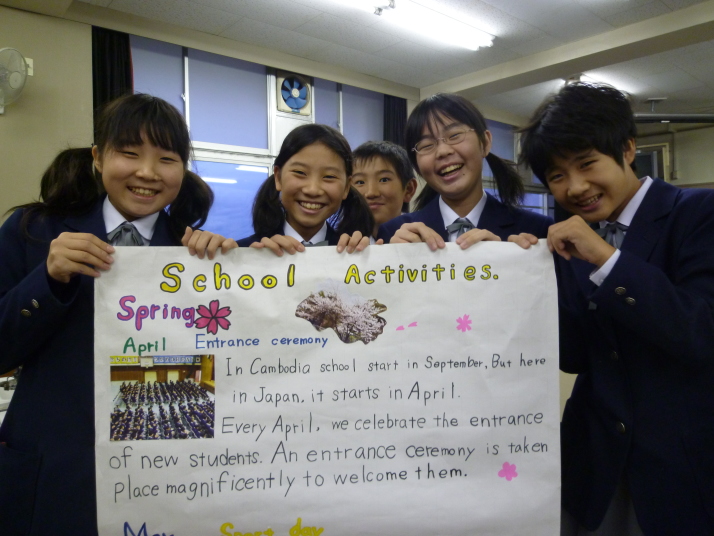 School Activities.
Spring
April Entrance ceremony
In Cambodia school start in September, But here
in Japan, it starts in April.
Every April, we celebrate the entrance
of new students. An entrance ceremony is taken
place magnificently to welcome them.
May Sport day